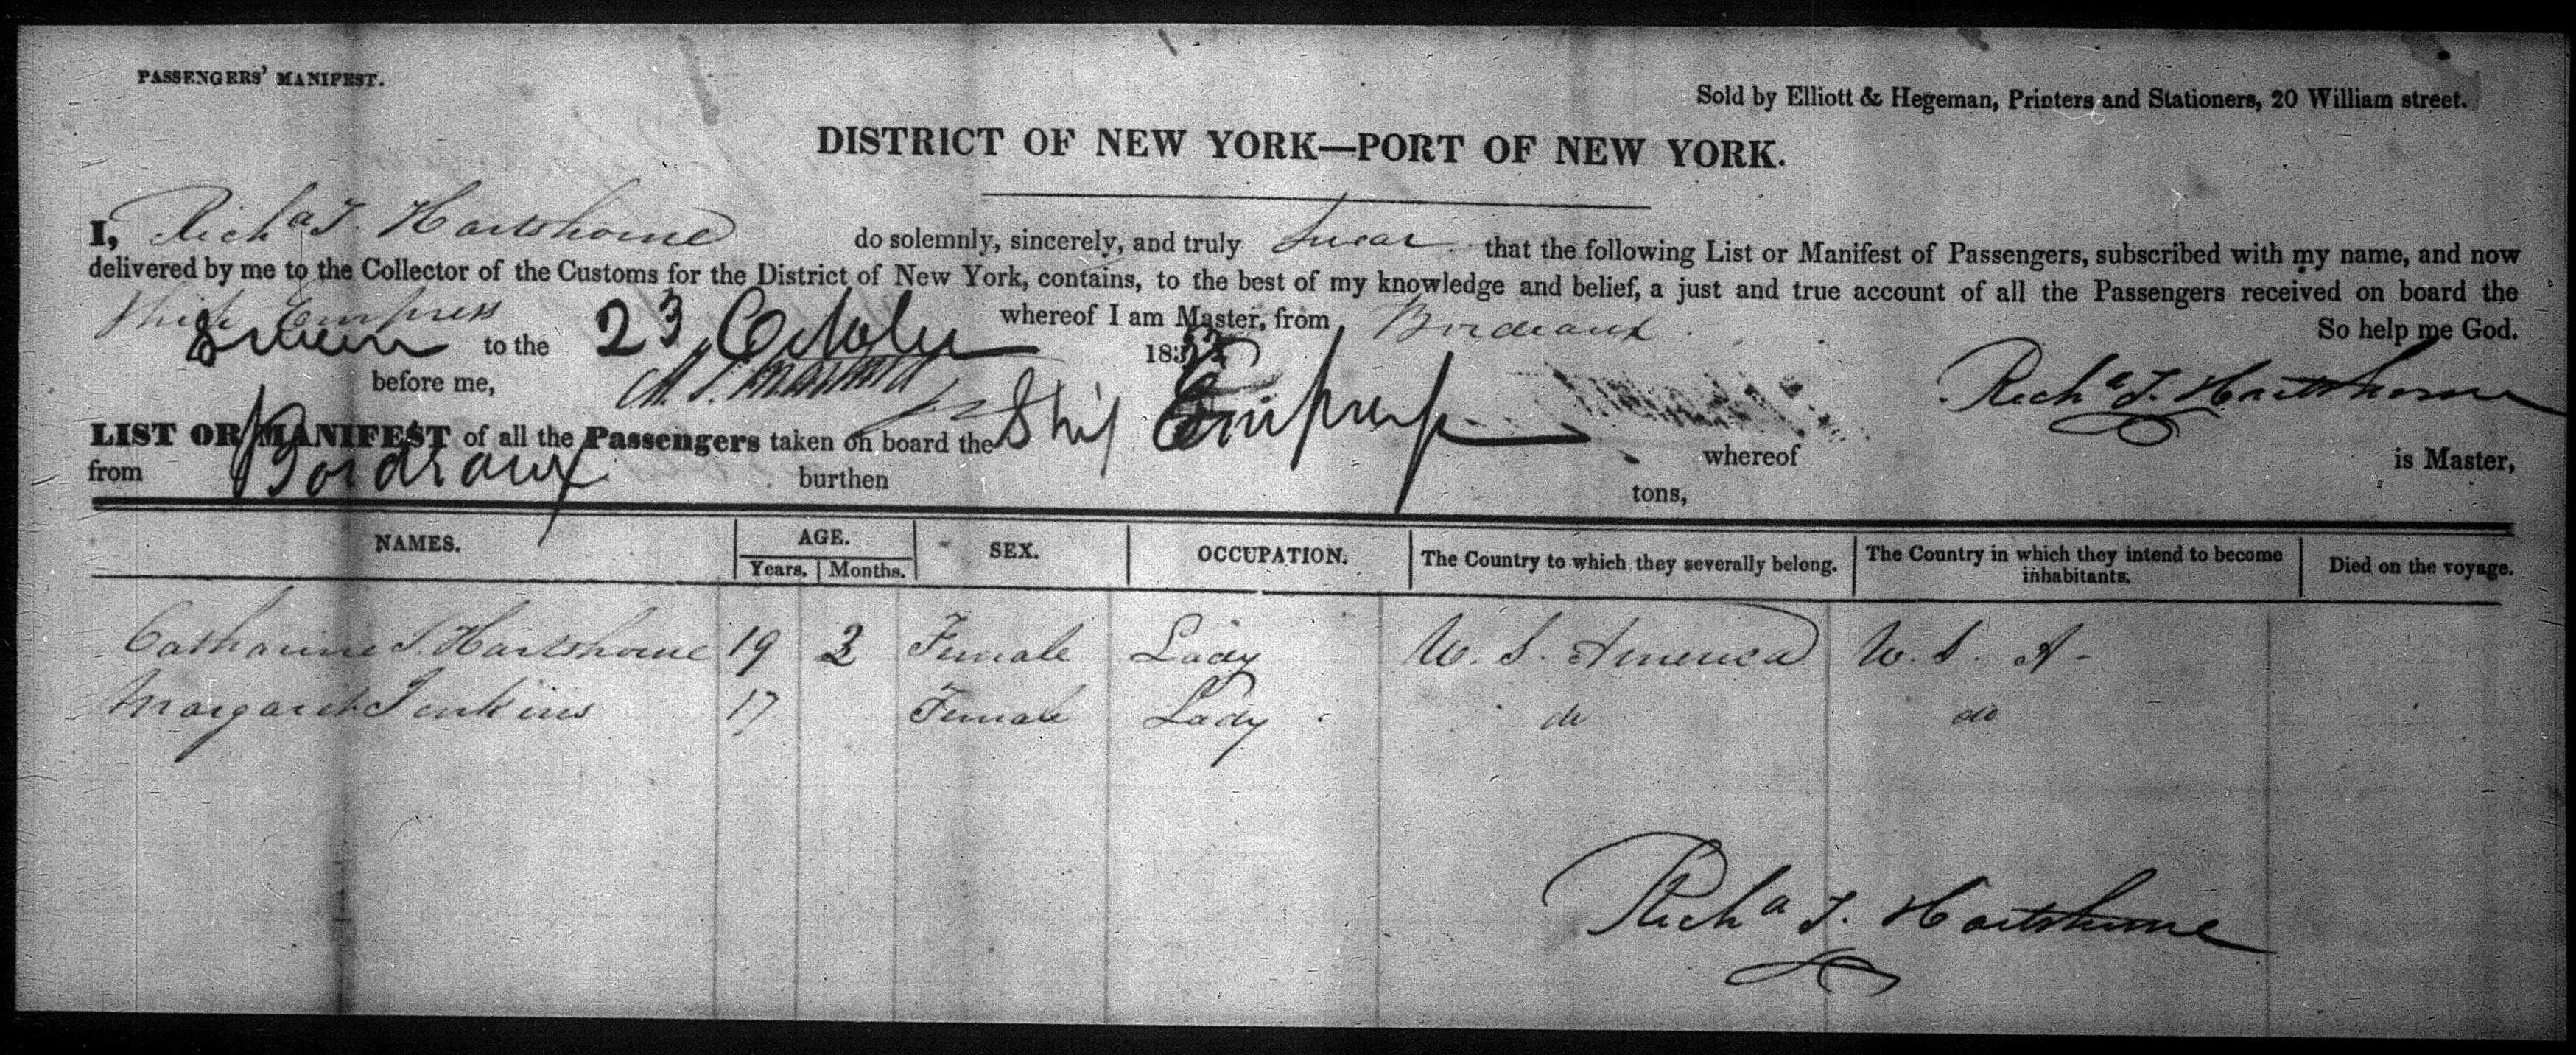 PASSENGERS' MANIFEST.
Sold by Elliott & Hegeman, Printers and Stationers, 20 William street.
DISTRICT OF NEW YORK—PORT OF NEW YORK.
I, Richd T. Hartshorne do solemnly, sincerely, and truly swear that the following List or Manifest of Passengers, subscribed with my name, and now
delivered by me to the Collector of the Customs for the District of New York, contains, to the best of my knowledge and belief, a just and true account of all the Passengers received on board the
Ship Empress whereof I am Master, from Bordeaux So help me God.
Sworn to the 23 October 183
before me, Richd T. Hartshorne
LIST OR MANIFEST of all the Passengers taken on board the Ship Empress whereof is Master,
from Bordeaux burthen tons,
NAMES. AGE. SEX. OCCUPATION. The Country to which they severally belong. The Country in which they intend to become inhabitants. Died on the voyage.
Years. Months.
Catharine S. Hartshorne 19 2 Female Lady U. S. America U. S. A-
Margaret Jenkins 17 Female Lady do do
Richd T. Hartshorne